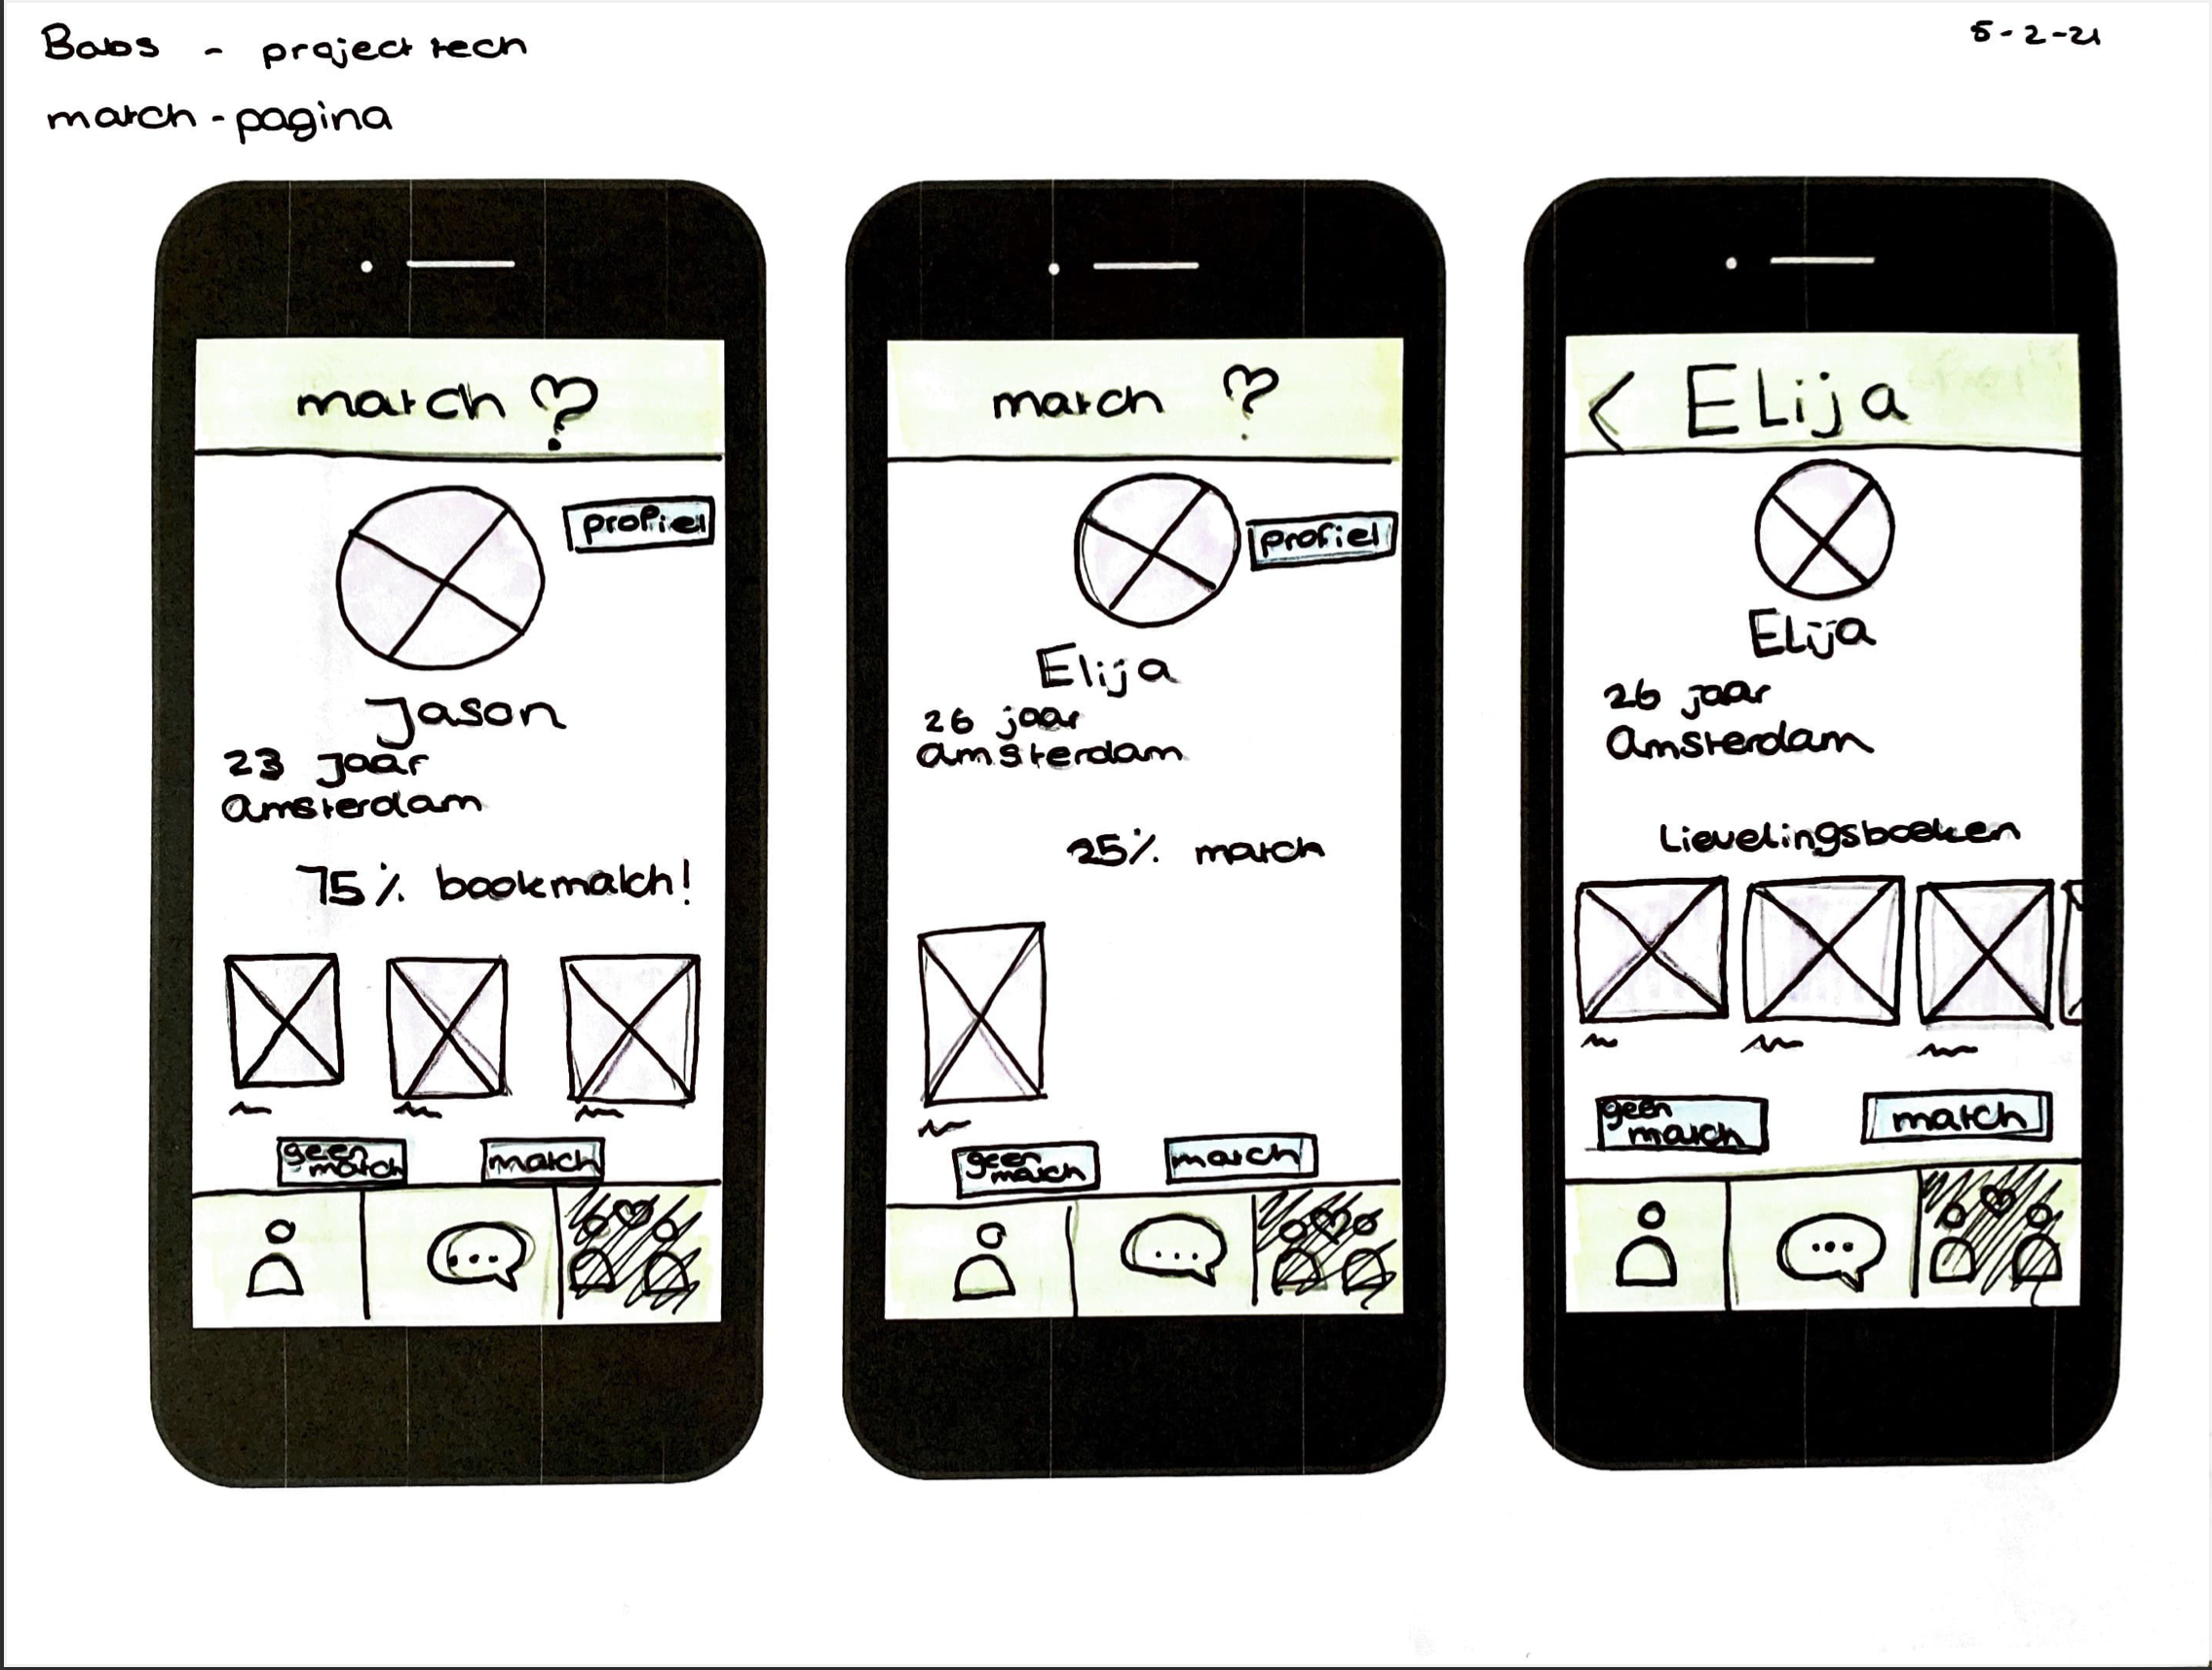 Babs - project tech
5-2-21
match-pagina
match ?
profiel
Jason
23 jaar
Amsterdam
75% bookmatch!
geen
match
match
match ?
profiel
Elija
26 jaar
Amsterdam
25% match
geen
match
match
< Elija
Elija
26 jaar
Amsterdam
Lievelingsboeken
geen
match
match